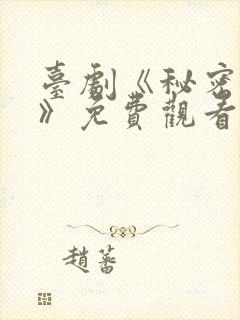 臺劇《秘密
》免費觀看
趙蕃